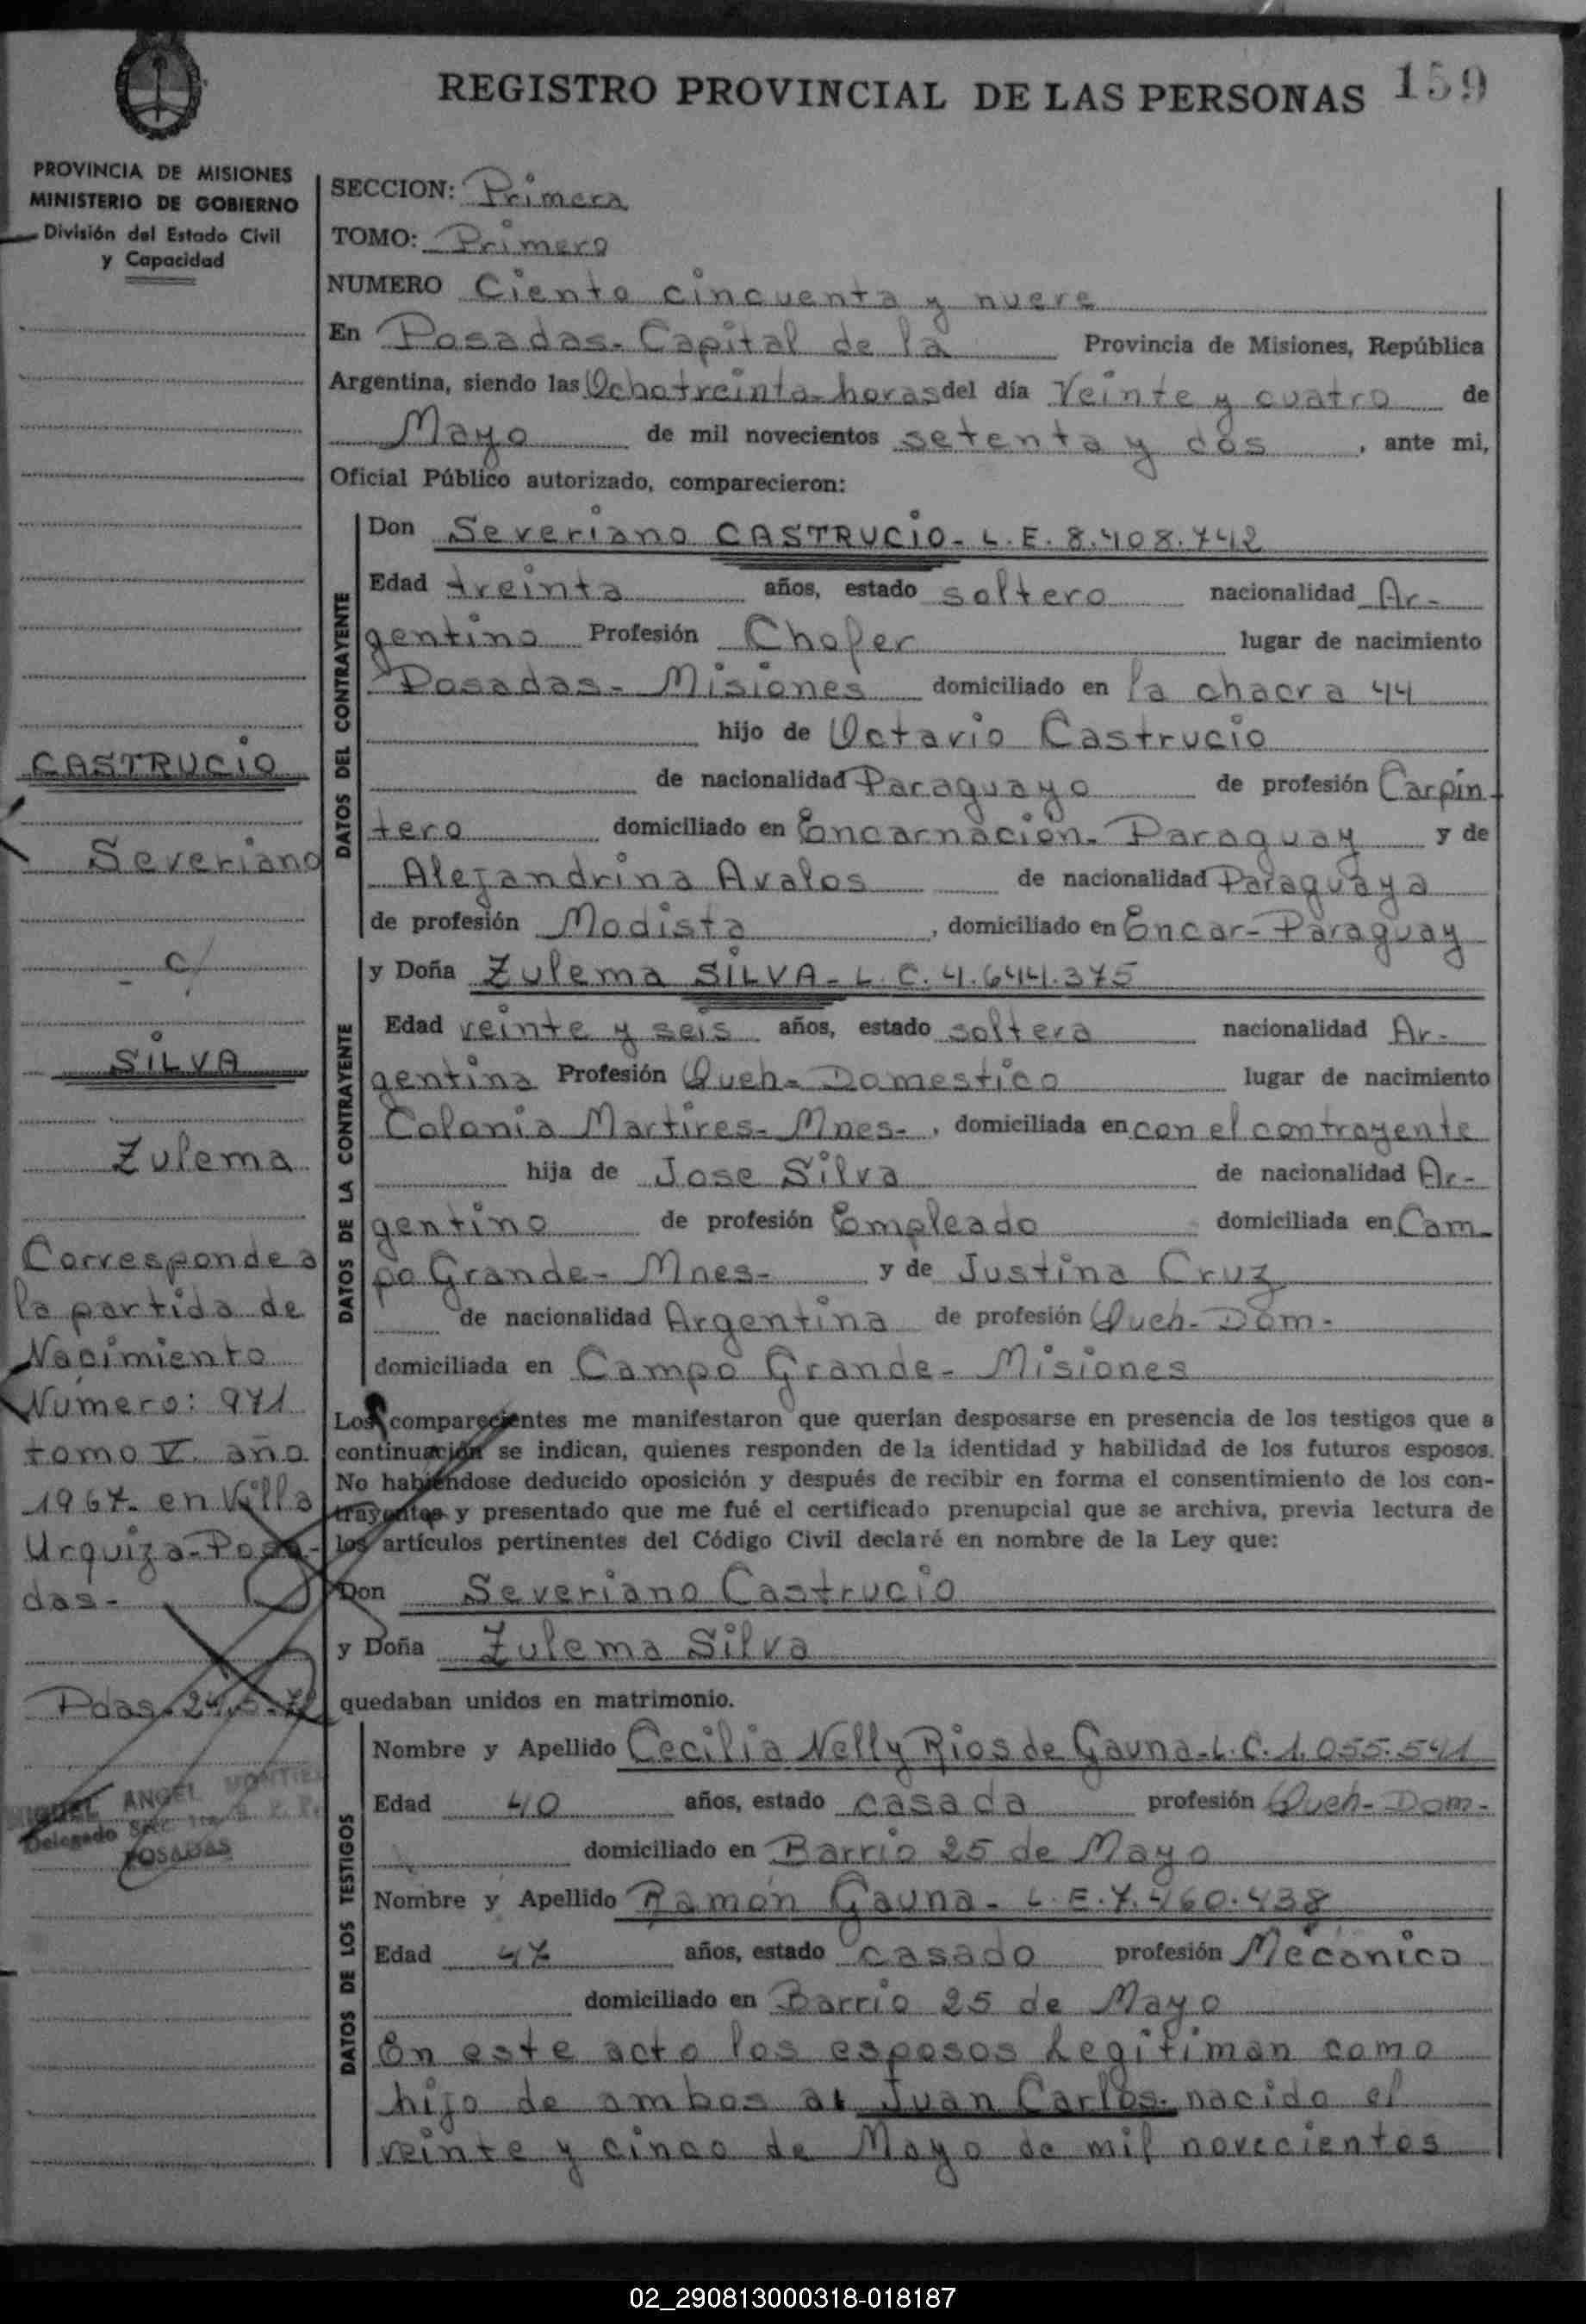 REGISTRO PROVINCIAL DE LAS PERSONAS 159
PROVINCIA DE MISIONES
MINISTERIO DE GOBIERNO
División del Estado Civil
y Capacidad
SECCION: Primera
TOMO: Primero
NUMERO Ciento cincuenta y nueve
En Posadas-Capital de la Provincia de Misiones, República
Argentina, siendo las Ocho treinta-horas del día Veinte y cuatro de
Mayo de mil novecientos setenta y dos, ante mi,
Oficial Público autorizado, comparecieron:
DATOS DEL CONTRAYENTE
Don Severiano CASTRUCIO- L.E. 8.408.742
Edad treinta años, estado soltero nacionalidad Ar-
gentino Profesión Chofer lugar de nacimiento
Posadas- Misiones domiciliado en la chacra 44
hijo de Octavio Castrucio
de nacionalidad Paraguayo de profesión Carpin-
tero domiciliado en Encarnación- Paraguay y de
Alejandrina Avalos de nacionalidad Paraguaya
de profesión Modista, domiciliado en Encar-Paraguay
DATOS DE LA CONTRAYENTE
y Doña Zulema SILVA- L.C. 4.644.375
Edad veinte y seis años, estado soltera nacionalidad Ar-
gentina Profesión Queh-Domestico lugar de nacimiento
Colonia Martires- Mnes-, domiciliada en con el contrayente
hija de Jose Silva de nacionalidad Ar-
gentino de profesión Empleado domiciliada en Cam-
po Grande- Mnes- y de Justina Cruz
de nacionalidad Argentina de profesión Queh-Dom-
domiciliada en Campo Grande- Misiones
Los comparecientes me manifestaron que querían desposarse en presencia de los testigos que a
continuación se indican, quienes responden de la identidad y habilidad de los futuros esposos.
No habiéndose deducido oposición y después de recibir en forma el consentimiento de los con-
trayentes y presentado que me fué el certificado prenupcial que se archiva, previa lectura de
los artículos pertinentes del Código Civil declaré en nombre de la Ley que:
Don Severiano Castrucio
y Doña Zulema Silva
quedaban unidos en matrimonio.
DATOS DE LOS TESTIGOS
Nombre y Apellido Cecilia Nelly Rios de Gauna-L.C. 1.055.541
Edad 40 años, estado casada profesión Queh-Dom-
domiciliado en Barrio 25 de Mayo
Nombre y Apellido Ramón Gauna- L.E. 7.460.438
Edad 47 años, estado casado profesión Mecanico
domiciliado en Barrio 25 de Mayo
En este acto los esposos Legitiman como
hijo de ambos a: Juan Carlos- nacido el
veinte y cinco de Mayo de mil novecientos
CASTRUCIO
Severiano
c/
SILVA
Zulema
Corresponde a
la partida de
Nacimiento
Número: 971
tomo V. año
1967- en Villa
Urquiza-Posa-
das-
Pdas-24-5-72
MIGUEL ANGEL MONTIEL
Delegado Secc. 1ra.
POSADAS
02_290813000318-018187